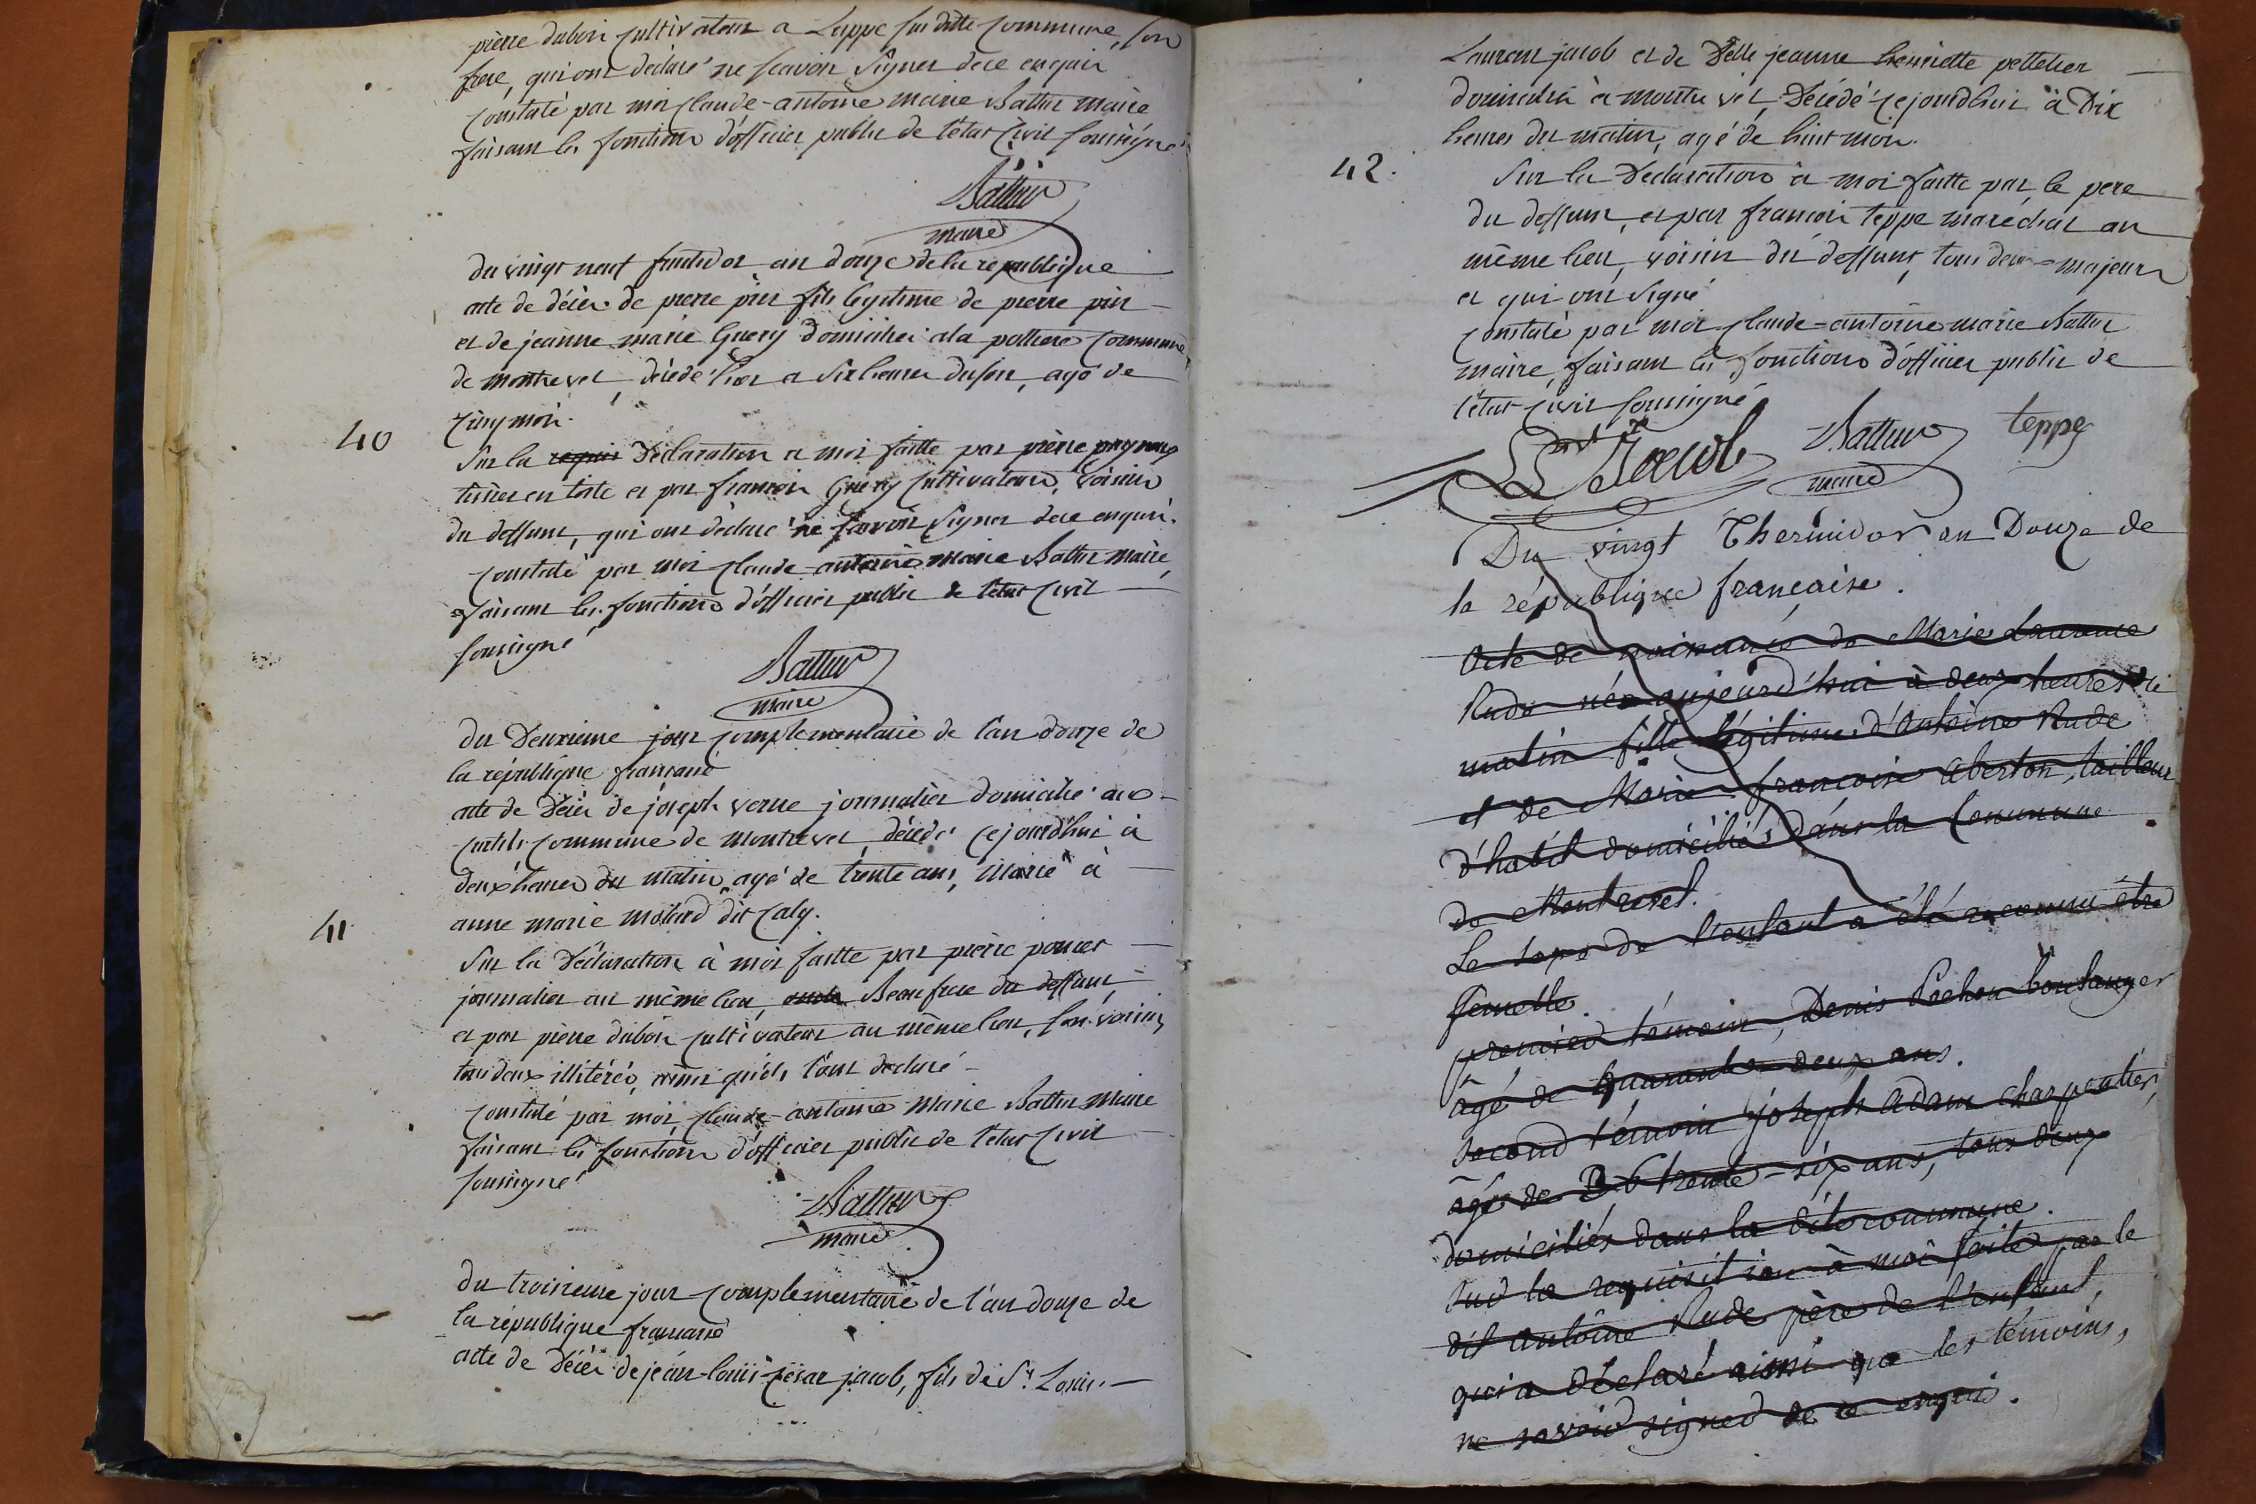 pierre dubois cultivateur a Luppe sus ditte commune, son
frere, qui ont déclaré ne scavoir signer de ce enquis
constaté par moi claude-antoine marie Battur maire
faisant les fonctions d'officier public de l'état civil soussigné
Battur
maire
du vingt neuf fructidor an douze de la republique
acte de décès de pierre pin fils légitime de pierre pin
et de jeanne marie Guery domiciliés a la commune
de montrevel, décédé hier a six heures du soir, agé de
cinq mois.
40
Sur la requis Déclaration a moi faitte par pierre
tissier en toile et par francois Guery cultivateur, voisin
du deffunt, qui ont déclaré ne scavoir signer de ce enquis.
constaté par moi claude-antoine marie Battur maire,
faisant les fonctions d'officier public de l'état civil
soussigné
Battur
maire
du Deuxieme jour complementaire de l'an douze de
la république francaise
acte de Décès de joseph verne journalier domicilié aux
curtils commune de montrevel, décédé cejourd'huí à
deux heures du matin, agé de trente ans, Marié à
anne marie molard dit Caly.
41
Sur la Déclaration à moi faitte par pierre poncet
journalier au même lieu, Beaufrere du deffunt,
et par pierre dubois cultivateur au même lieu, son voisin,
tou deux illitérés, ainsi qu'ils l'ont declaré
constaté par moi, claude-antoine Marie Battur Maire
faisant les fonctions d'officier public de l'état civil
soussigné
Battur
maire
du troisieme jour complementaire de l'an douze de
la république francaise
acte de Décès de jean-louis-césar jacob, fils de Sr. Louis-
Laurent jacob et de Delle jeanne henriette pelletier
domiciliés à montrevel, Décédé cejourdhui à Dix
heures du matin, agé de huit mois.
42.
Sur la Déclaration à moi faitte par le pere
du deffunt, et par francois teppe maréchal au
même lieu, voisin du deffunt, tous deux majeurs
et qui ont signé
constaté par moi claude-antoine marie Battur
maire, faisant les fonctions d'officier public de
l'état civil soussigné
Ls Jacob Battur teppe
maire
Du vingt Thermidor an Douze de
la république française.
Acte de naissance de Marie Laurence
Rude née aujourd'hui à deux heures du
matin fille légitime d'Antoine Rude
et de Marie françoise Aberton, tailleur
d'habit domiciliés dans la Commune
de Montrevel.
Le sexe de l'enfant a été reconnu être
femelle.
premier témoin, Denis Pochon boulanger
âgé de quarante-deux ans.
second témoin joseph Adam charpentier,
âgé de 36 trente-six ans, tous deux
domiciliés dans la dite commune.
sur la requisition à moi faite par le
dit Antoine Rude père de l'enfant,
qui a déclaré ainsi que les témoins,
ne savoir signer de ce enquis.